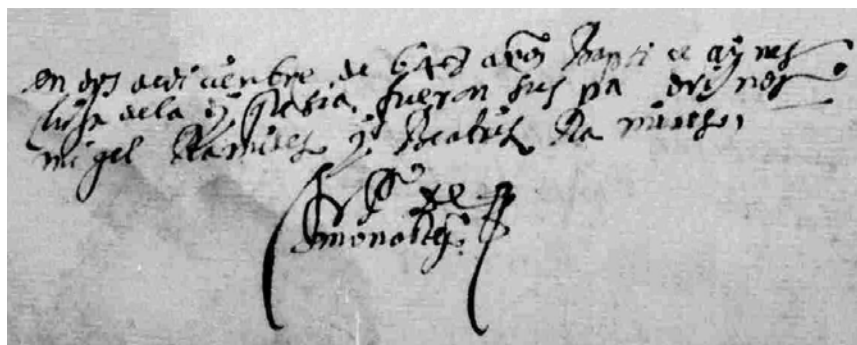 en dos de diciembre de 648 aos Baptice a ynes
hija dela yglesia fueron sus padrinos
migel Ramires y Beatris Ramires
de